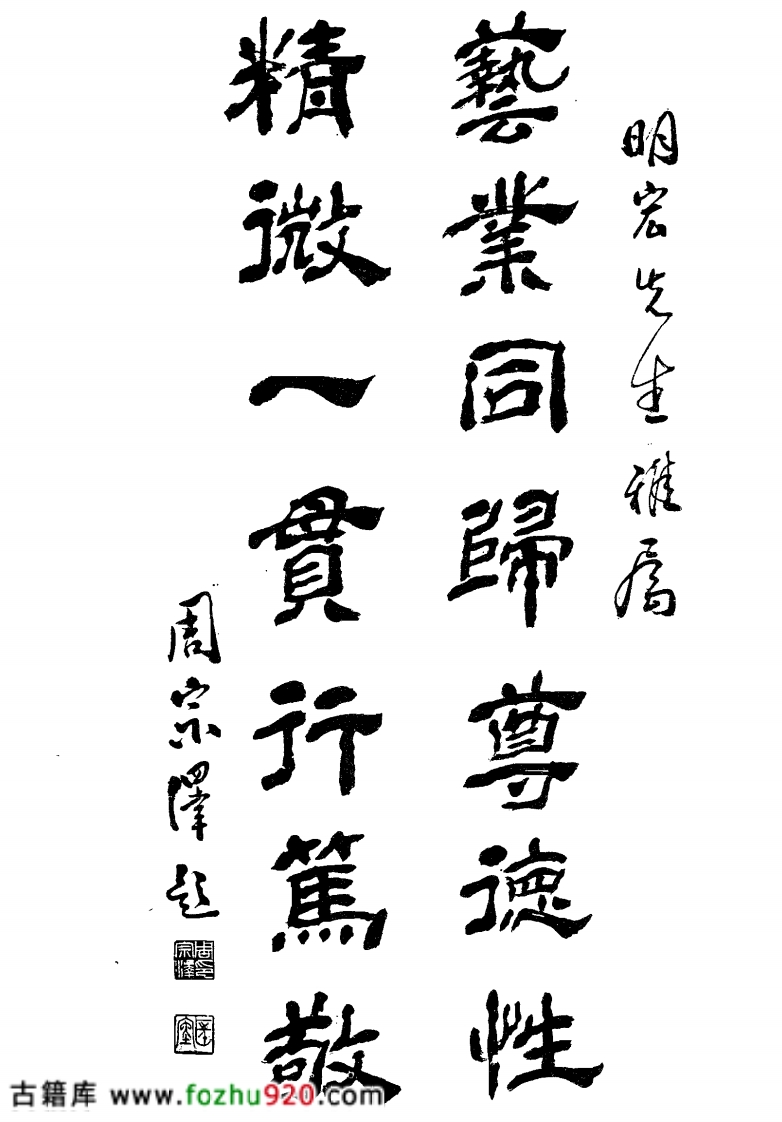 明宏先生雅屬
藝業同歸尊德性
精微一貫行篤敬
周宗澤題
周宗澤印
古籍库 www.fozhu920.com